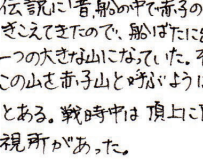 伝説に「昔、船の中で赤子の
きこえてきたので、船ばたに
一つの大きな山になっていた。
この山を赤子山と呼ぶよう
とある。戦時中は頂上に
視所があった。